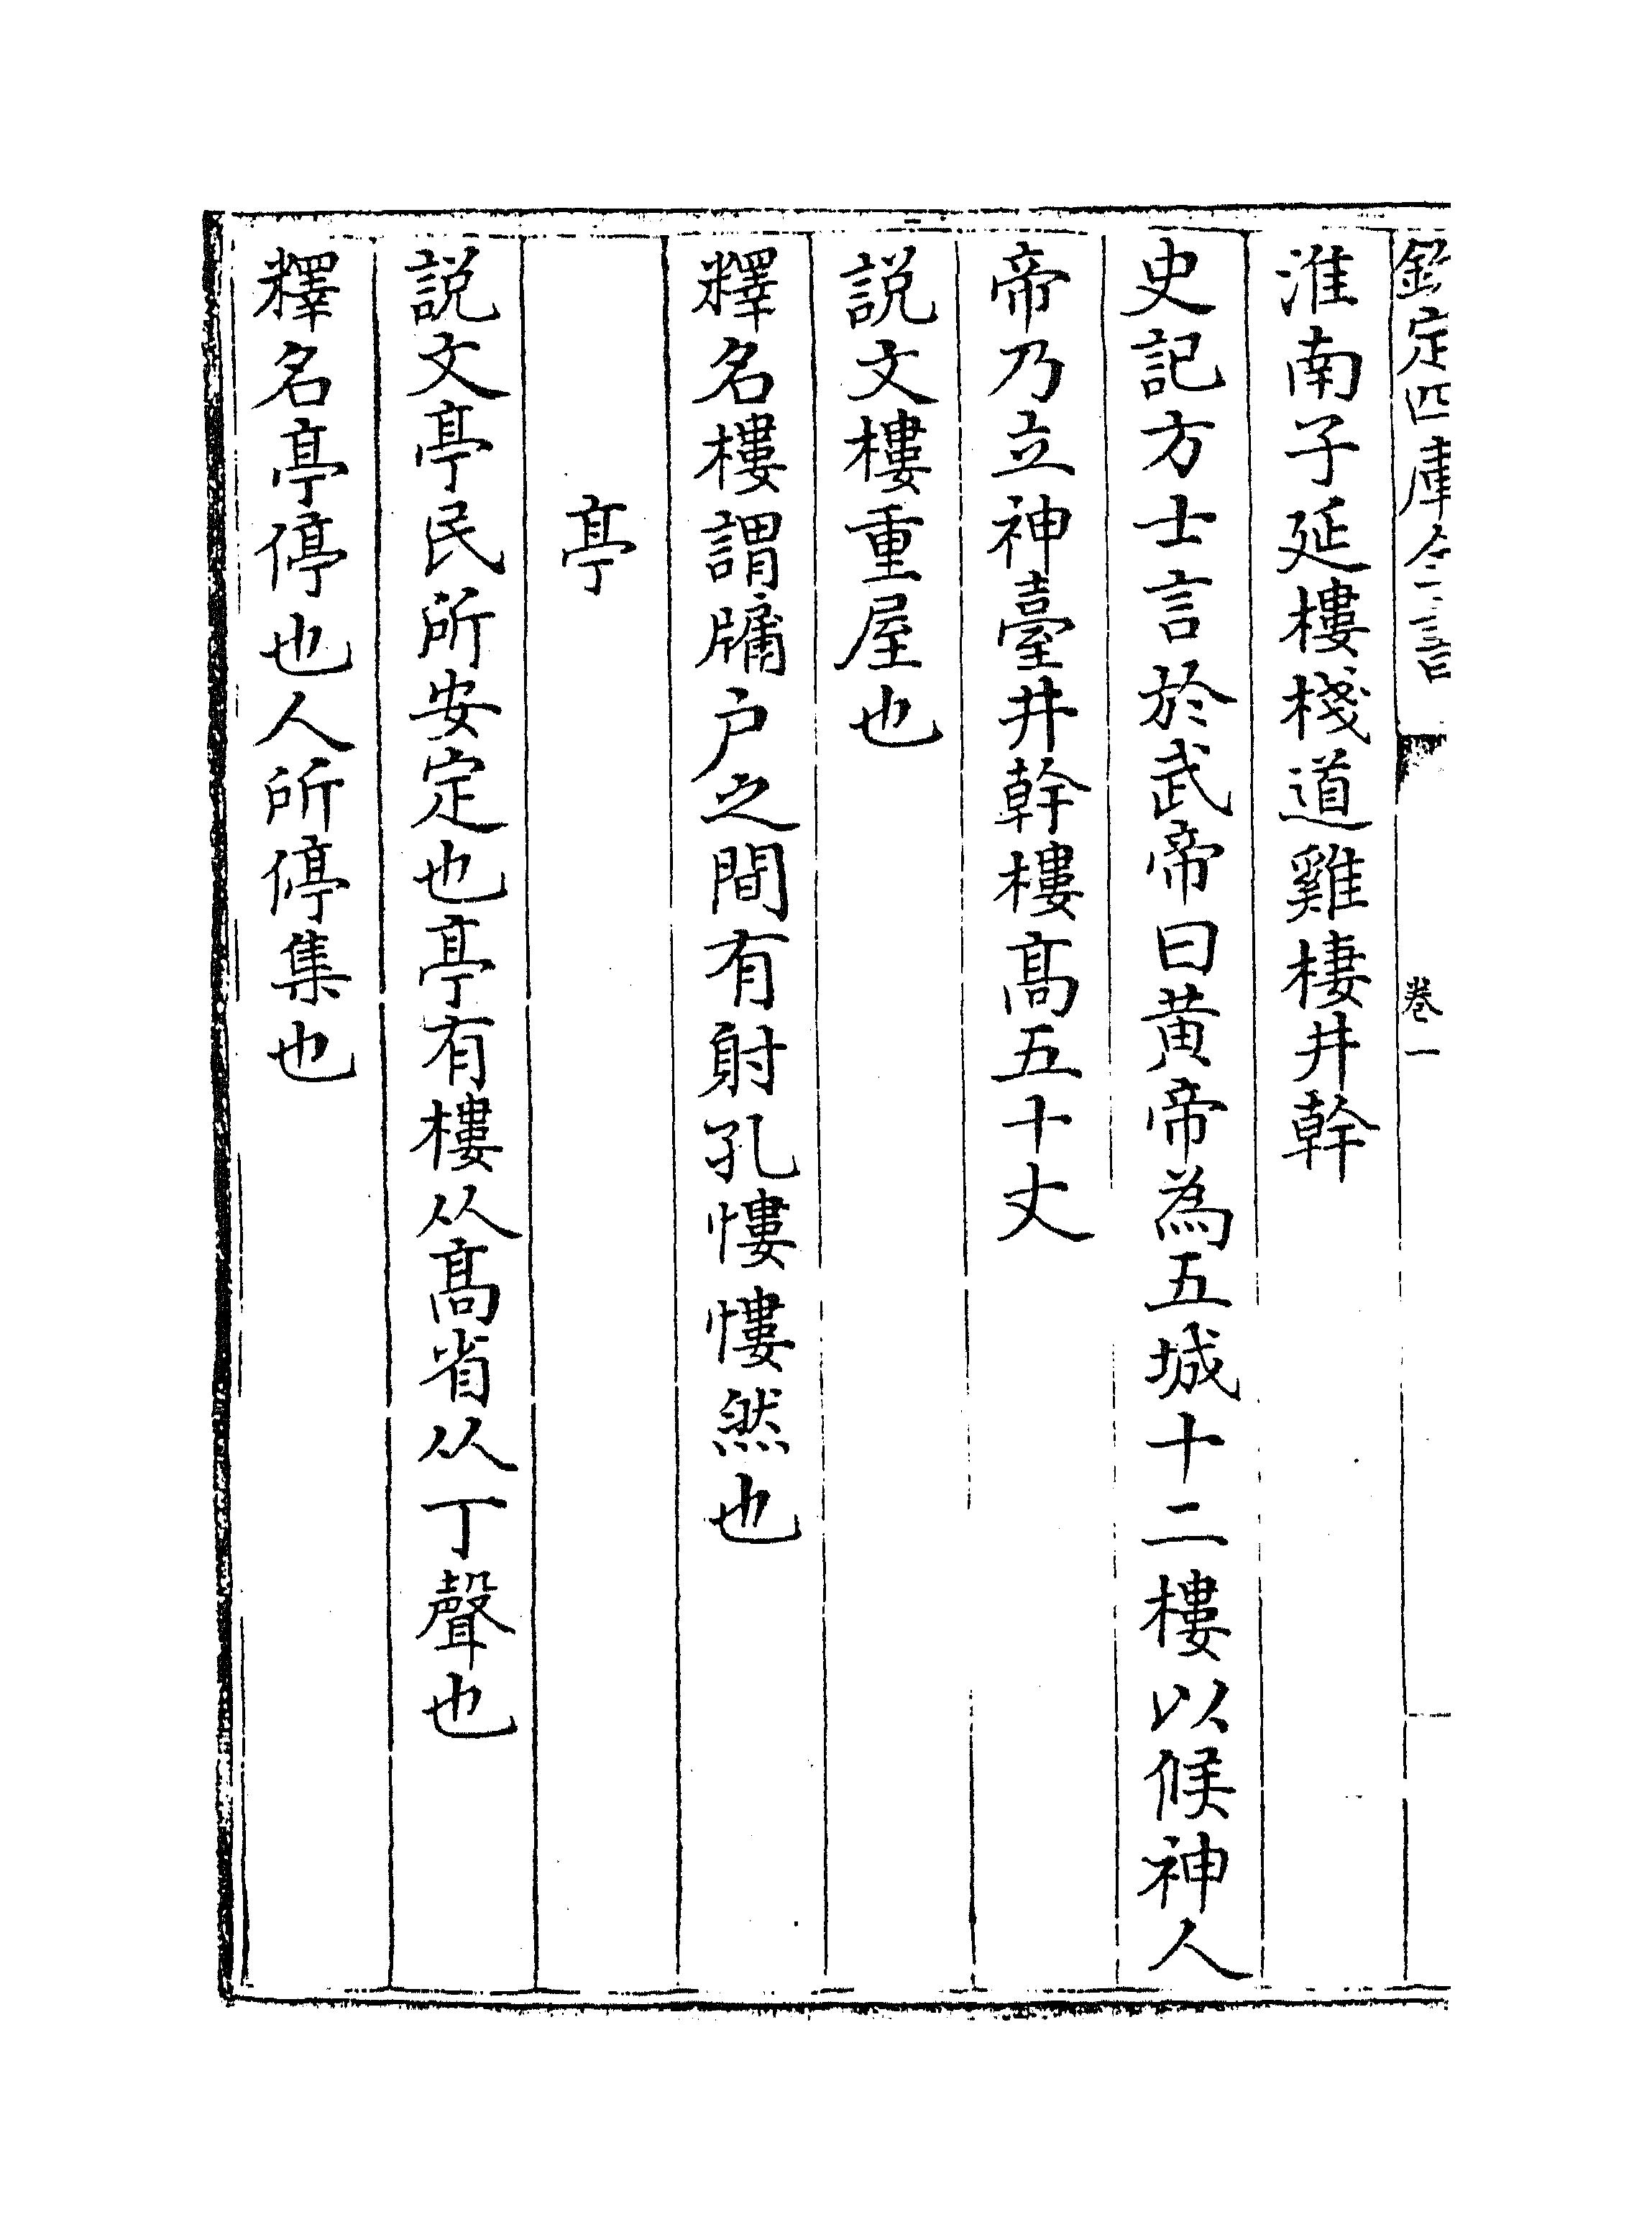 欽定四庫全書
卷一
淮南子延樓棧道雞棲井幹
史記方士言於武帝曰黄帝為五城十二樓以候神人
帝乃立神臺井幹樓髙五十丈
説文樓重屋也
釋名樓謂牗户之間有射孔慺慺然也
亭
説文亭民所安定也亭有樓从髙省从丁聲也
釋名亭停也人所停集也